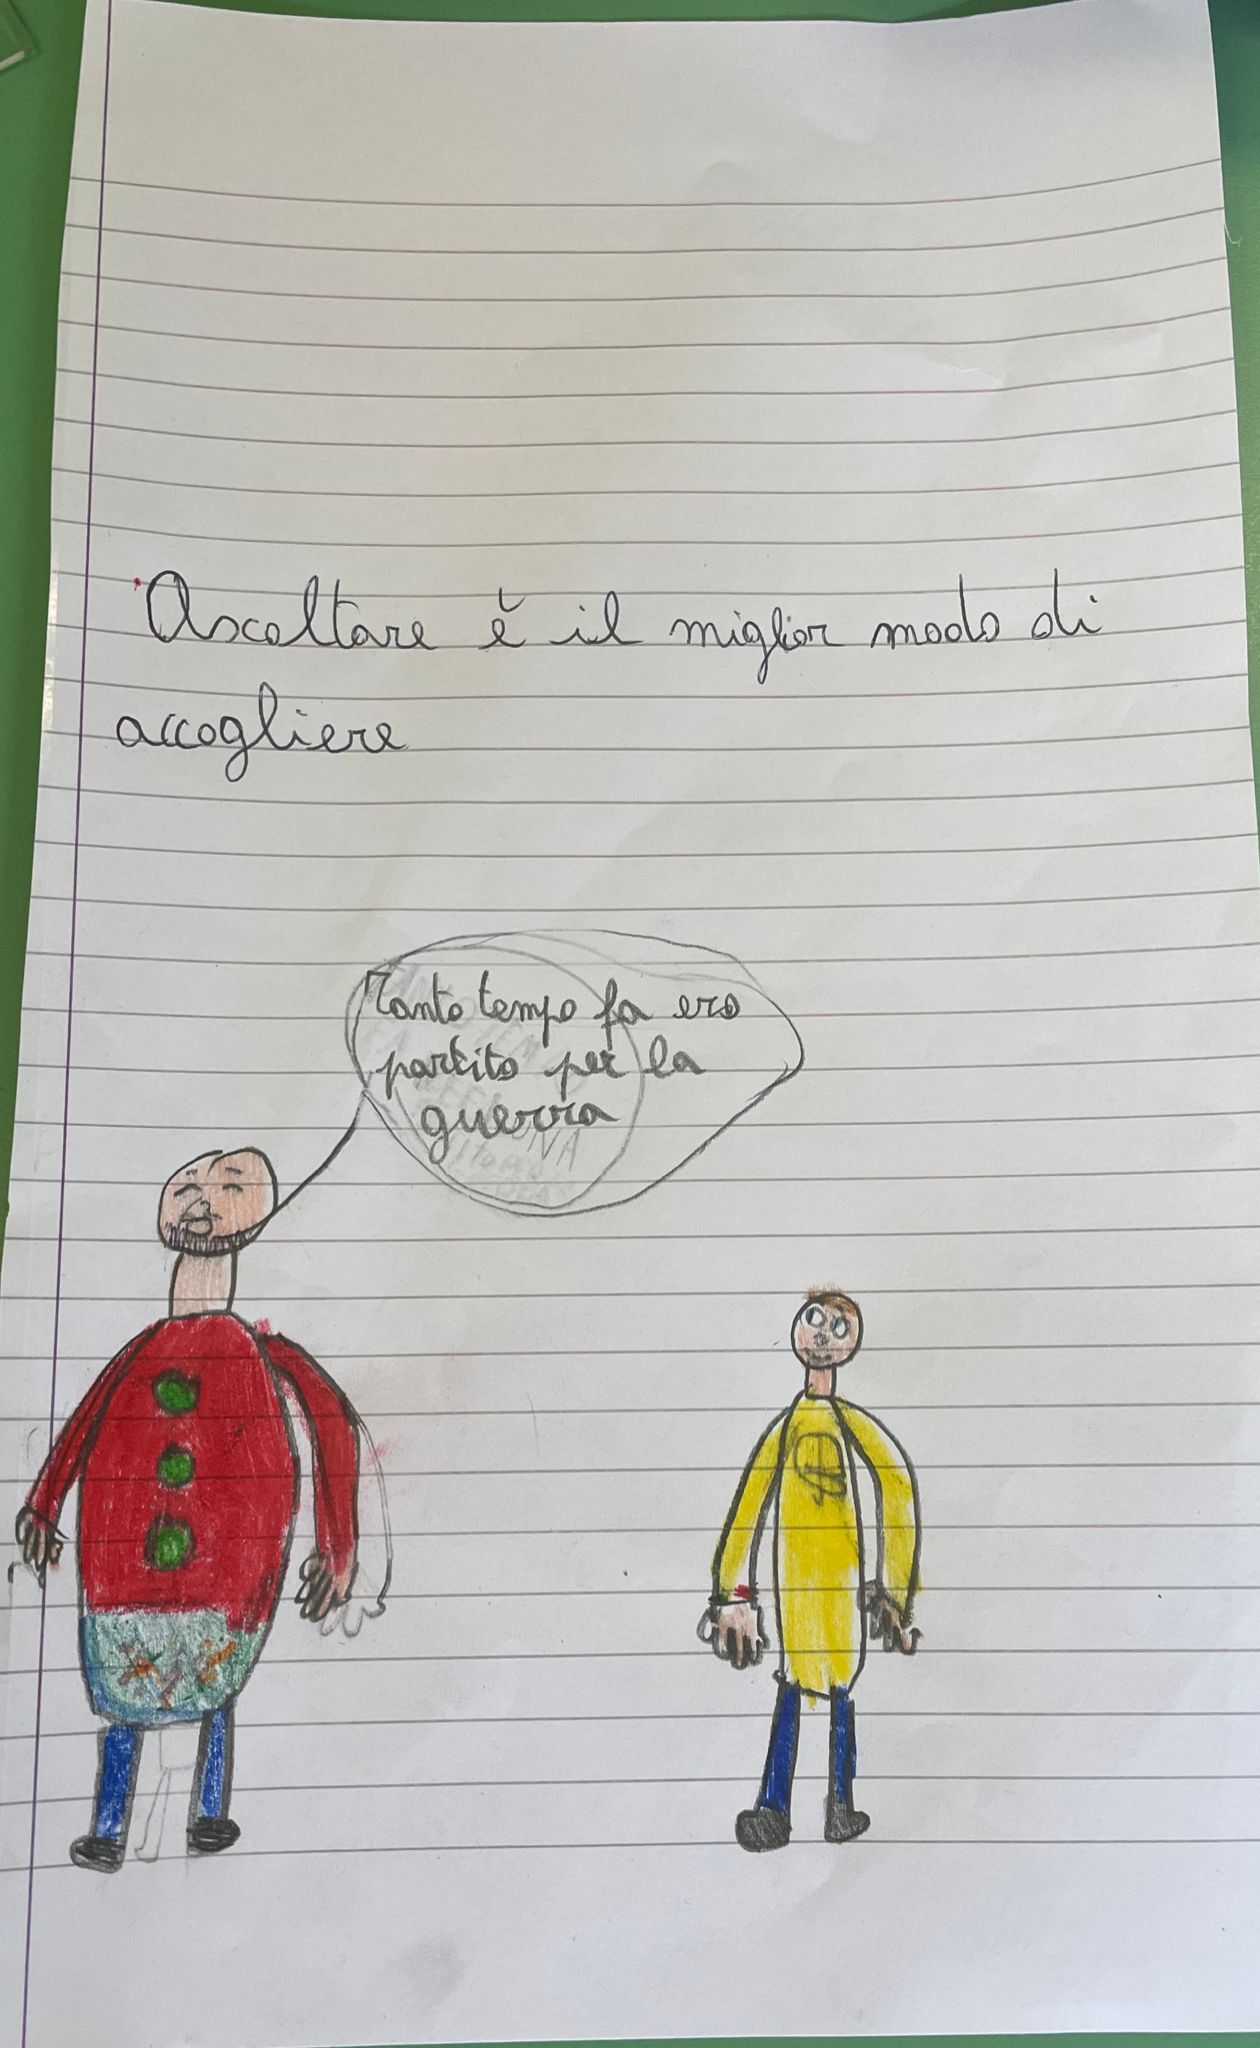 Ascoltare è il miglior modo di
accogliere
Tanto tempo fa ero
partito per la
guerra